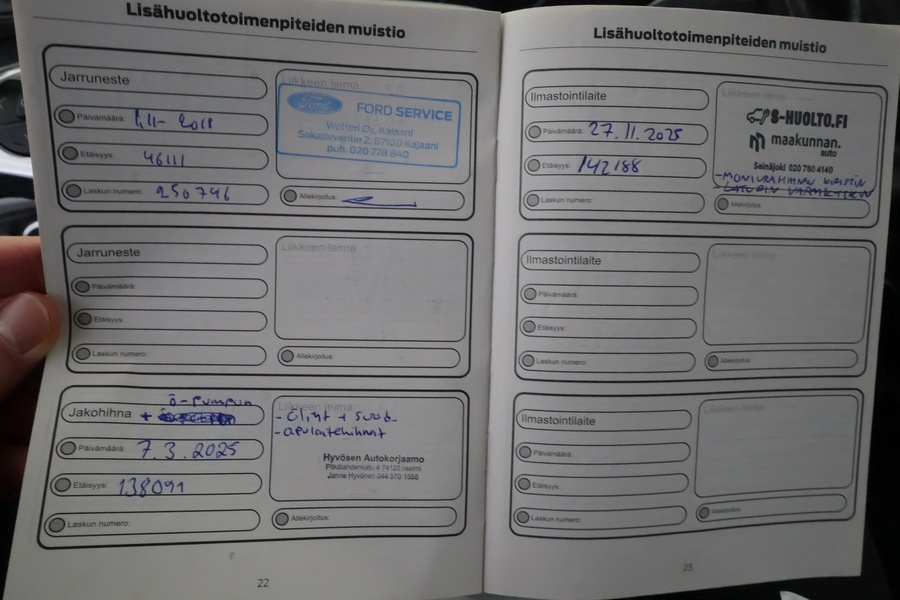 Lisähuoltotoimenpiteiden muistio
Jarruneste
Päivämäärä: 1.11- 2018
Etäisyys: 46111
Laskun numero: 250746
Liikkeen leima
Ford
FORD SERVICE
Wetteri Oy, Kajaani
Sokajärventie 2, 87100 Kajaani
puh. 020 778 840
Allekirjoitus:
Jarruneste
Päivämäärä:
Etäisyys:
Laskun numero:
Liikkeen leima
Allekirjoitus:
Jakohihna + ö-pumpun
Päivämäärä: 7.3.2025
Etäisyys: 138091
Laskun numero:
Liikkeen leima
- Öljyt + suod.
- apulaitehihnat
Hyvösen Autokorjaamo
74120 Iisalmi
Janne Hyvönen 044 970 1588
Allekirjoitus:
22
Lisähuoltotoimenpiteiden muistio
Ilmastointilaite
Päivämäärä: 27.11.2025
Etäisyys: 142188
Laskun numero:
Liikkeen leima
S-HUOLTO.FI
maakunnan.
auto
Seinäjoki 020 780 4140
- MONIURAHIHNAN KIRISTIN
- LATURIN
Allekirjoitus:
Ilmastointilaite
Päivämäärä:
Etäisyys:
Laskun numero:
Liikkeen leima
Allekirjoitus:
Ilmastointilaite
Päivämäärä:
Etäisyys:
Laskun numero:
Liikkeen leima
Allekirjoitus:
23